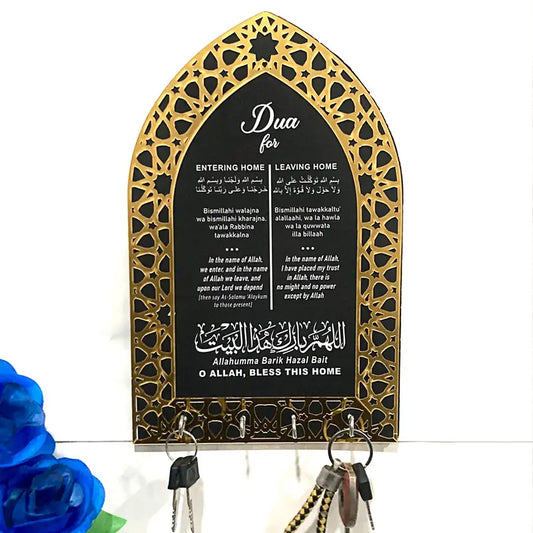 Dua
for
ENTERING HOME
بِسْمِ اللهِ وَلَجْنَا وَبِسْمِ اللهِ
خَرَجْنَا وَعَلَى رَبِّنَا تَوَكَّلْنَا
Bismillahi walajna
wa bismillahi kharajna,
wa'ala Rabbina
tawakkalna
•••
In the name of Allah,
we enter, and in the name
of Allah we leave, and
upon our Lord we depend
[then say As-Salamu 'Alaykum
to those present]
LEAVING HOME
بِسْمِ اللهِ تَوَكَّلْتُ عَلَى اللهِ
وَلَا حَوْلَ وَلَا قُوَّةَ إِلَّا بِاللهِ
Bismillahi tawakkaltu'
alallaahi, wa la hawla
wa la quwwata
illa billaah
•••
In the name of Allah,
I have placed my trust
in Allah, there is
no might and no power
except by Allah
اللهُمَّ بَارِكْ هَذَا الْبَيْت
Allahumma Barik Hazal Bait
O ALLAH, BLESS THIS HOME